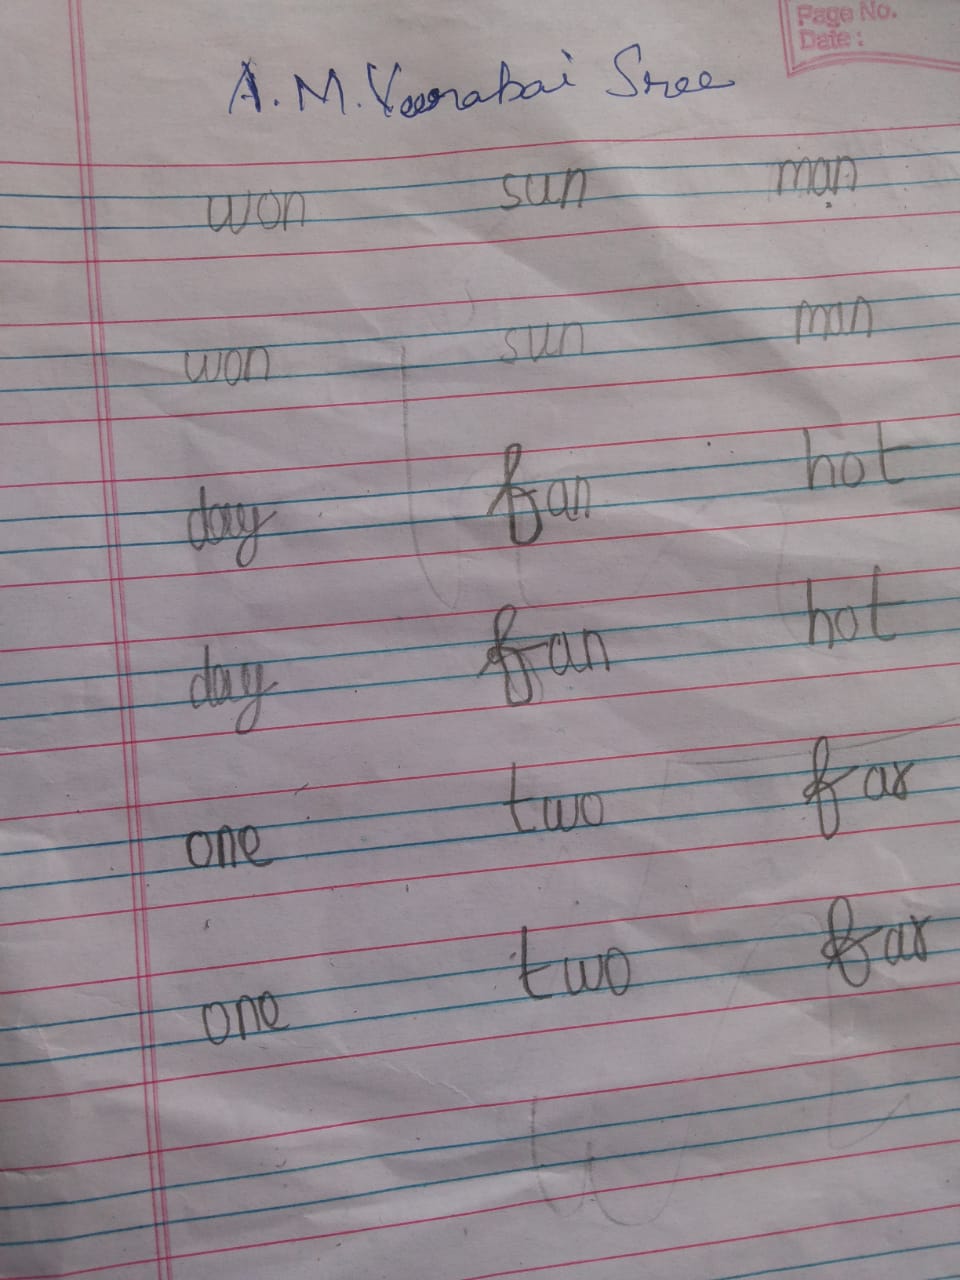 Page No.
Date :
A. M. Veerabai Sree
won sun man
won sun man
day fan hot
day fan hot
one two far
one two far